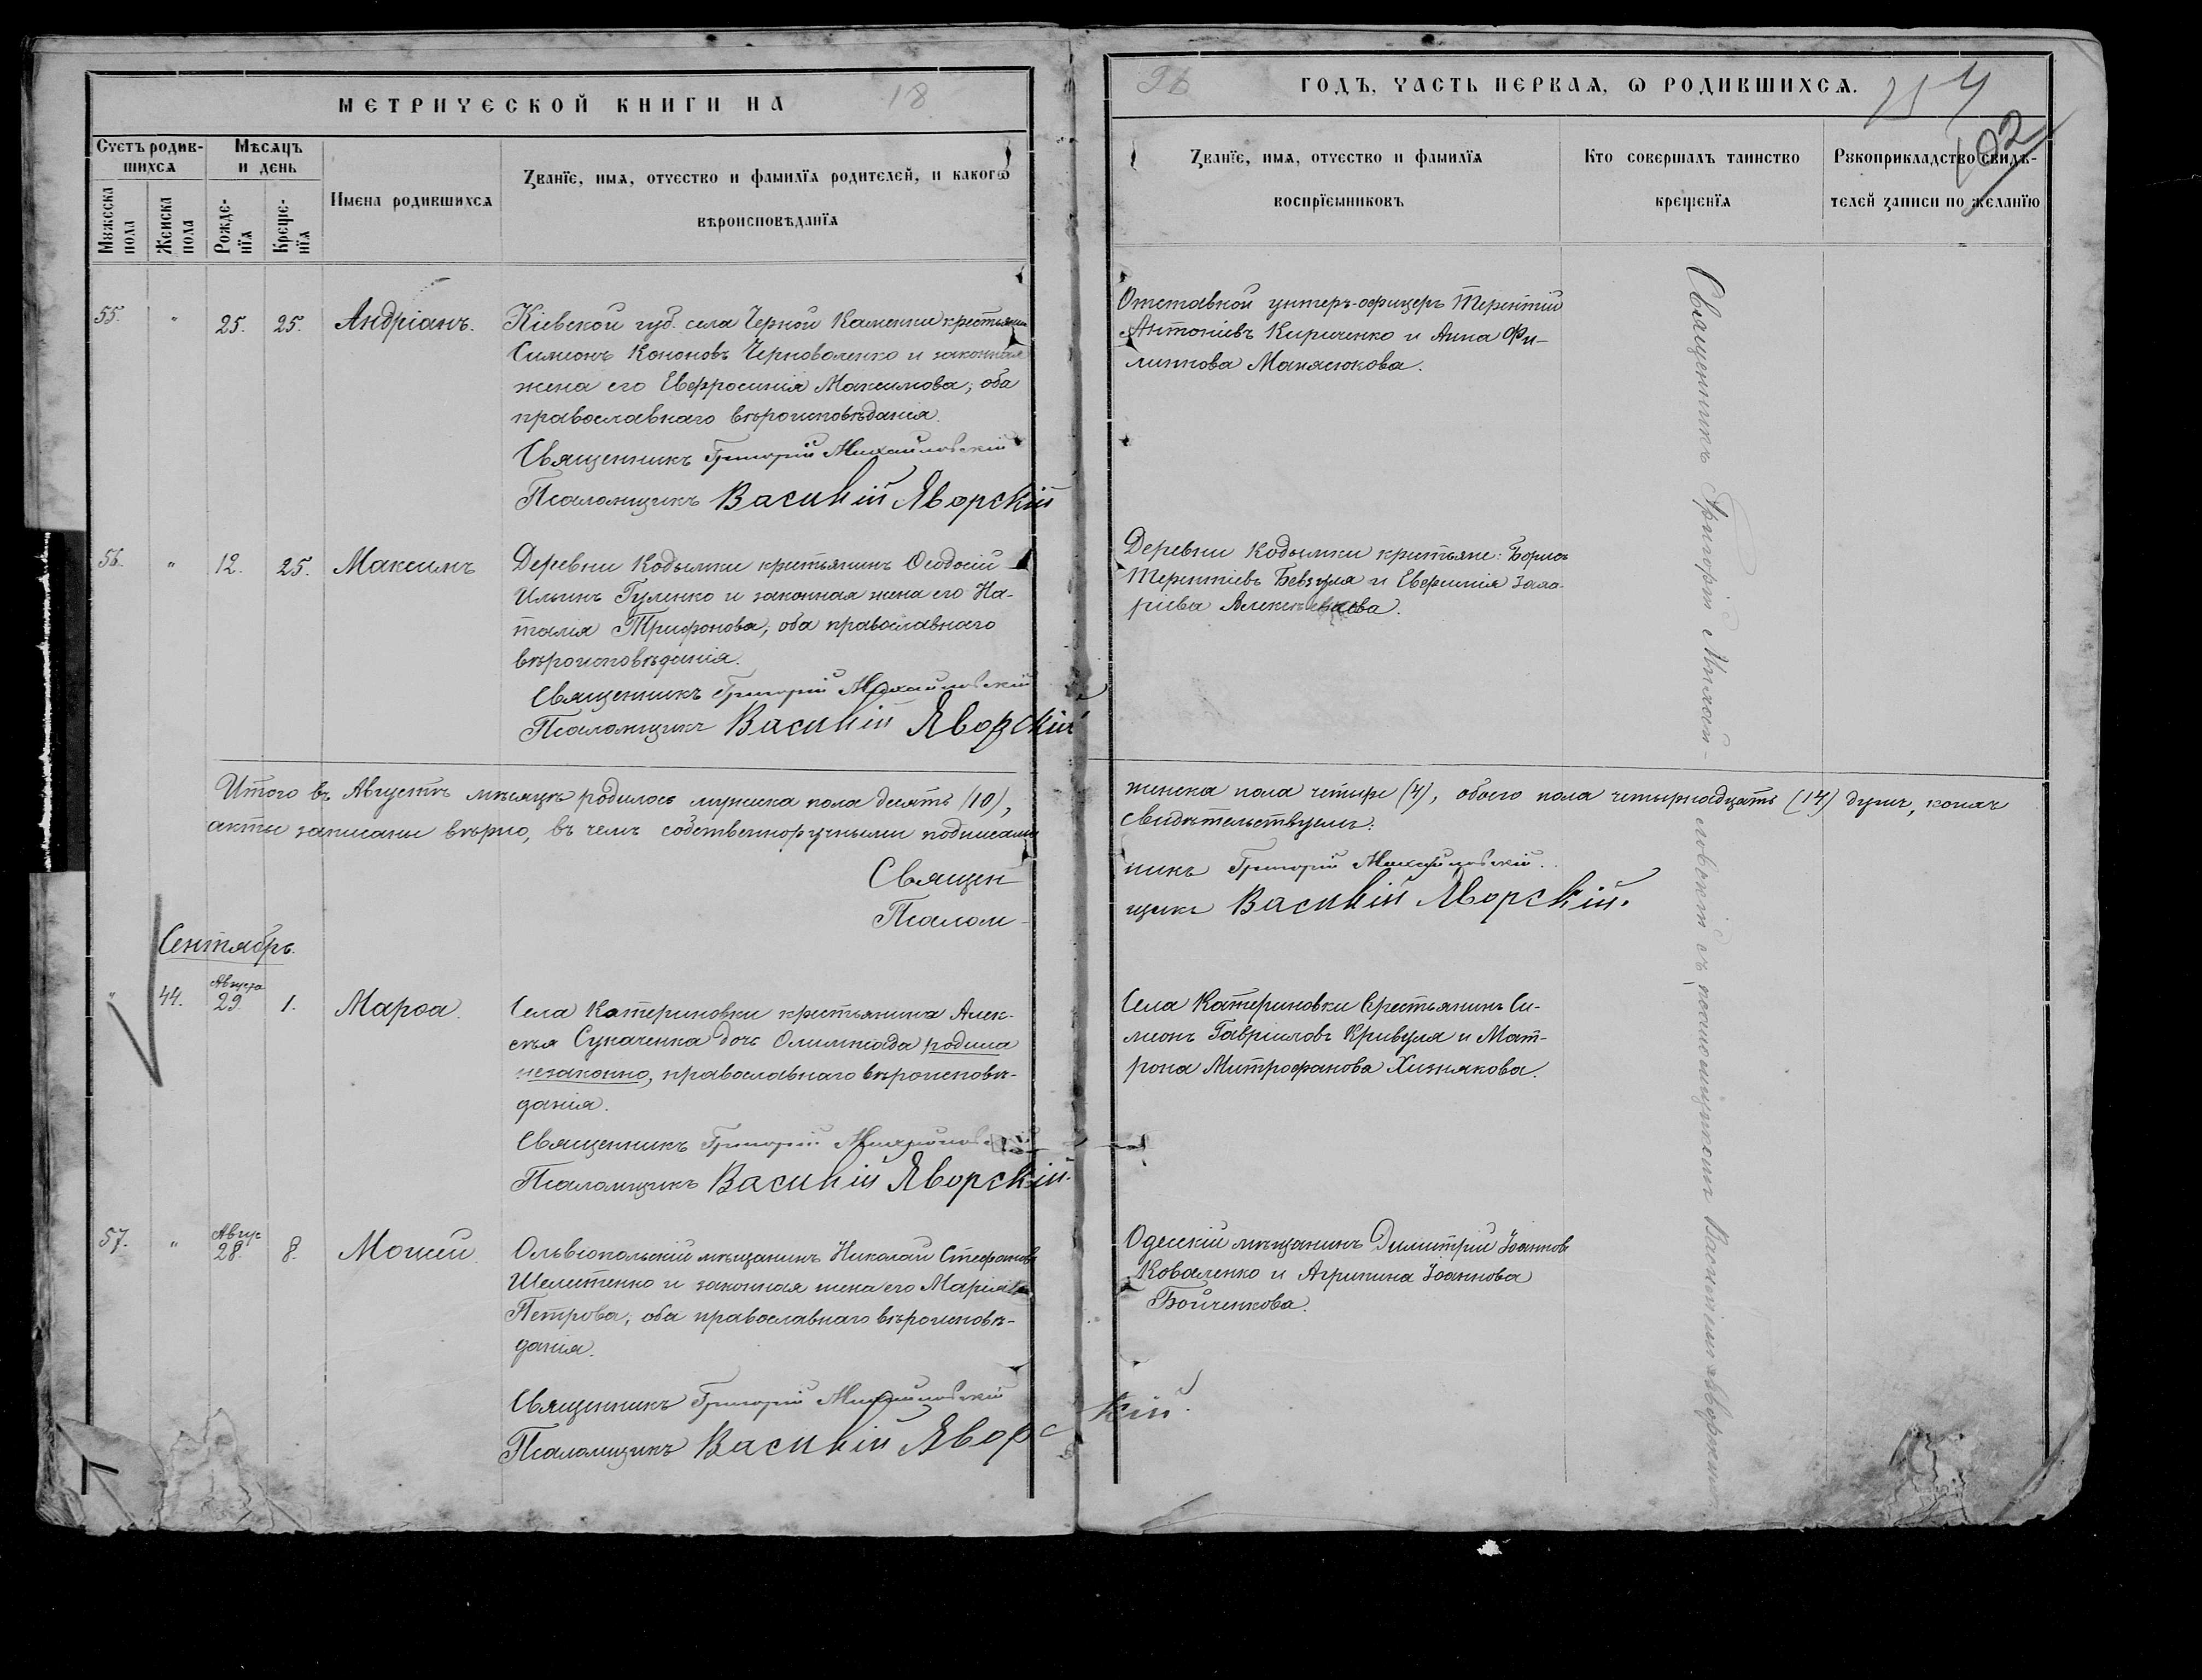 МЕТРИЧЕСКОЙ КНИГИ НА 18
Счетъ родив-
шихся
Мѣсяцъ
и день
Имена родившихся
Званїе, имя, отчество и фамилїя родителей, и какогѡ
вѣроисповѣданїя
Мужеска
пола
Женска
пола
Рожде-
нїя
Креще-
нїя
55. " 25. 25. Андріанъ.
Кіевской губ. села Черной Каменки крестьянинъ
Симеонъ Кононовъ Черноволенко и законная
жена его Евфросинія Максимова; оба
православнаго вѣроисповѣданія.
Священникъ Григорій Михайловскій
Псаломщикъ Василій Яворскій
56. " 12. 25. Максимъ
Деревни Кодымки крестьянинъ Ѳеодосій
Ильинъ Гуленко и законная жена его На-
талія Трифонова, оба православнаго
вѣроисповѣданія.
Священникъ Григорій Михайловскій
Псаломщикъ Василій Яворскій
Итого въ Августѣ мѣсяцѣ родилось мужеска пола десять (10),
акты записаны вѣрно, въ чемъ собственноручными подписами
Священ-
Псалом-
Сентябрь.
" 44. Августа 29. 1. Марѳа.
Села Катериновки крестьянина Алек-
сѣя Сукаченка дочь Олимпіада родила
незаконно, православнаго вѣроисповѣ-
данія.
Священникъ Григорій Михайловскій
Псаломщикъ Василій Яворскій.
57. " Авгус 28. 8. Моисей
Ольвіопольскій мѣщанинъ Николай Стефановъ
Шелестенко и законная жена его Марія
Петрова; оба православнаго вѣроисповѣ-
данія.
Священникъ Григорій Михайловскій
Псаломщикъ Василій Яворскій.
96 ГОДЪ, ЧАСТЬ ПЕРВАЯ, Ѡ РОДИВШИХСЯ.
102
Званїе, имя, отчество и фамилїя
воспрїемниковъ
Кто совершалъ таинство
крещенїя
Рукоприкладство свидѣ-
телей записи по желанїю
Отставной унтеръ-офицеръ Терентій
Антоніевъ Кириченко и Анна Фи-
липпова Манясюкова.
Деревни Кодымки крестьяне: Борисъ
Терентіевъ Бевзуля и Евфимія
Села Катериновки крестьянинъ Си-
меонъ Гавріиловъ Кривуля и Мат-
рона Митрофанова Хижнякова.
Одесскій мѣщанинъ Димитрій Іоанновъ
Коваленко и Агрипина Іоаннова
Бойченкова.
женска пола четыре (4), обоего пола четырнадцать (14) душъ, коихъ
свидѣтельствуемъ:
никъ Григорій Михайловскій.
щикъ Василій Яворскій.
Священникъ Григорій Михай-
ловскій съ псаломщикомъ Василіемъ Яворскимъ